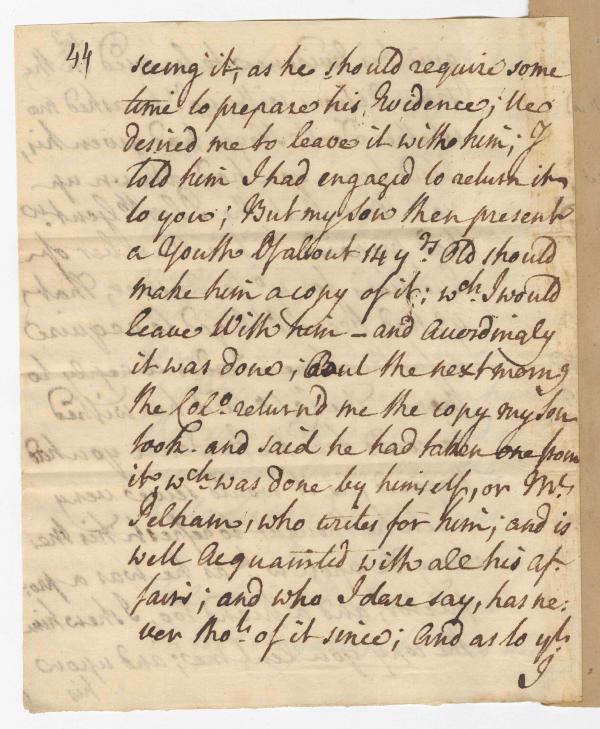 44
seeing it, as he should require some
time to prepare his Evidence; He
desired me to leave it with him; I
told him I had engaged to return it
to you; But my son then present
a Youth Of about 14 yrs. Old should
make him a copy of it; wch. I would
leave With him – and accordingly
it was done; But the next morng
the Colo. return'd me the copy my son
took. and said he had taken one from
it, wch. was done by himself, or Mr.
Pelham, who writes for him; and is
well Acquainted with all his af-
fairs; and who I dare say, has ne:
ver thot. of it since; and as to
I